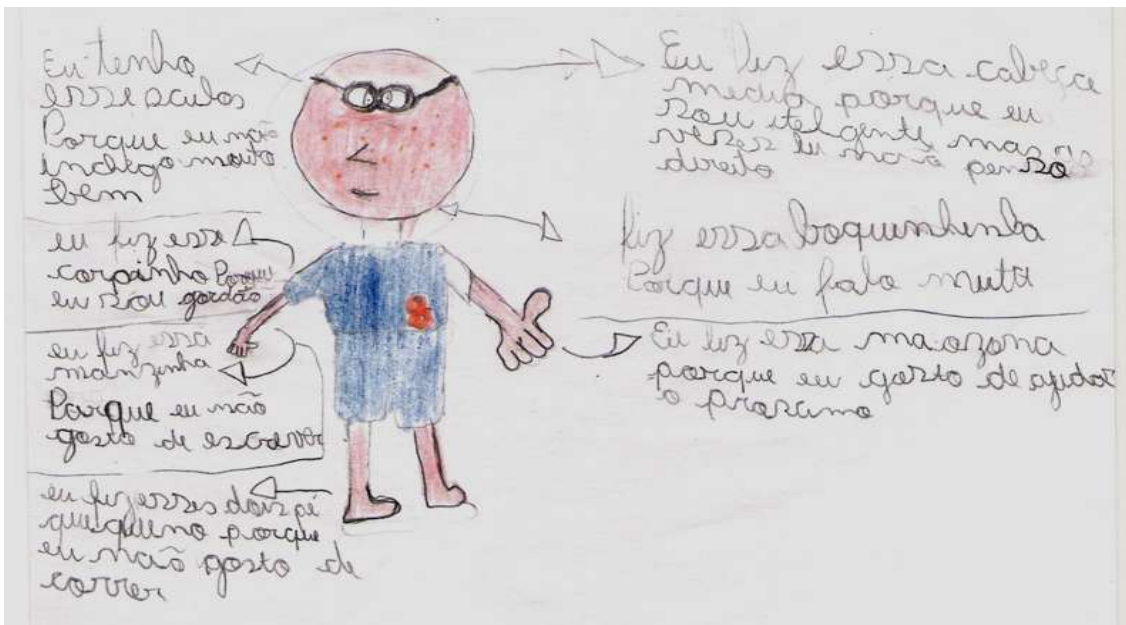 Eu tenho
esses oculos
Porque eu não
indego muito
bem
eu fiz esse
corpinho Porque
eu sou gordão
eu fiz essa
manzinha
Porque eu não
gosto de escrever
eu fiz esses dois pé
que queno porque
eu não gosto de
correr
Eu fiz essa cabeça
media porque eu
sou itelgente mas às
vezes eu não penso
direito
fiz essa boquinhinha
Porque eu falo muto
Eu fiz essa maozona
porque eu gosto de ajudar
o proximo